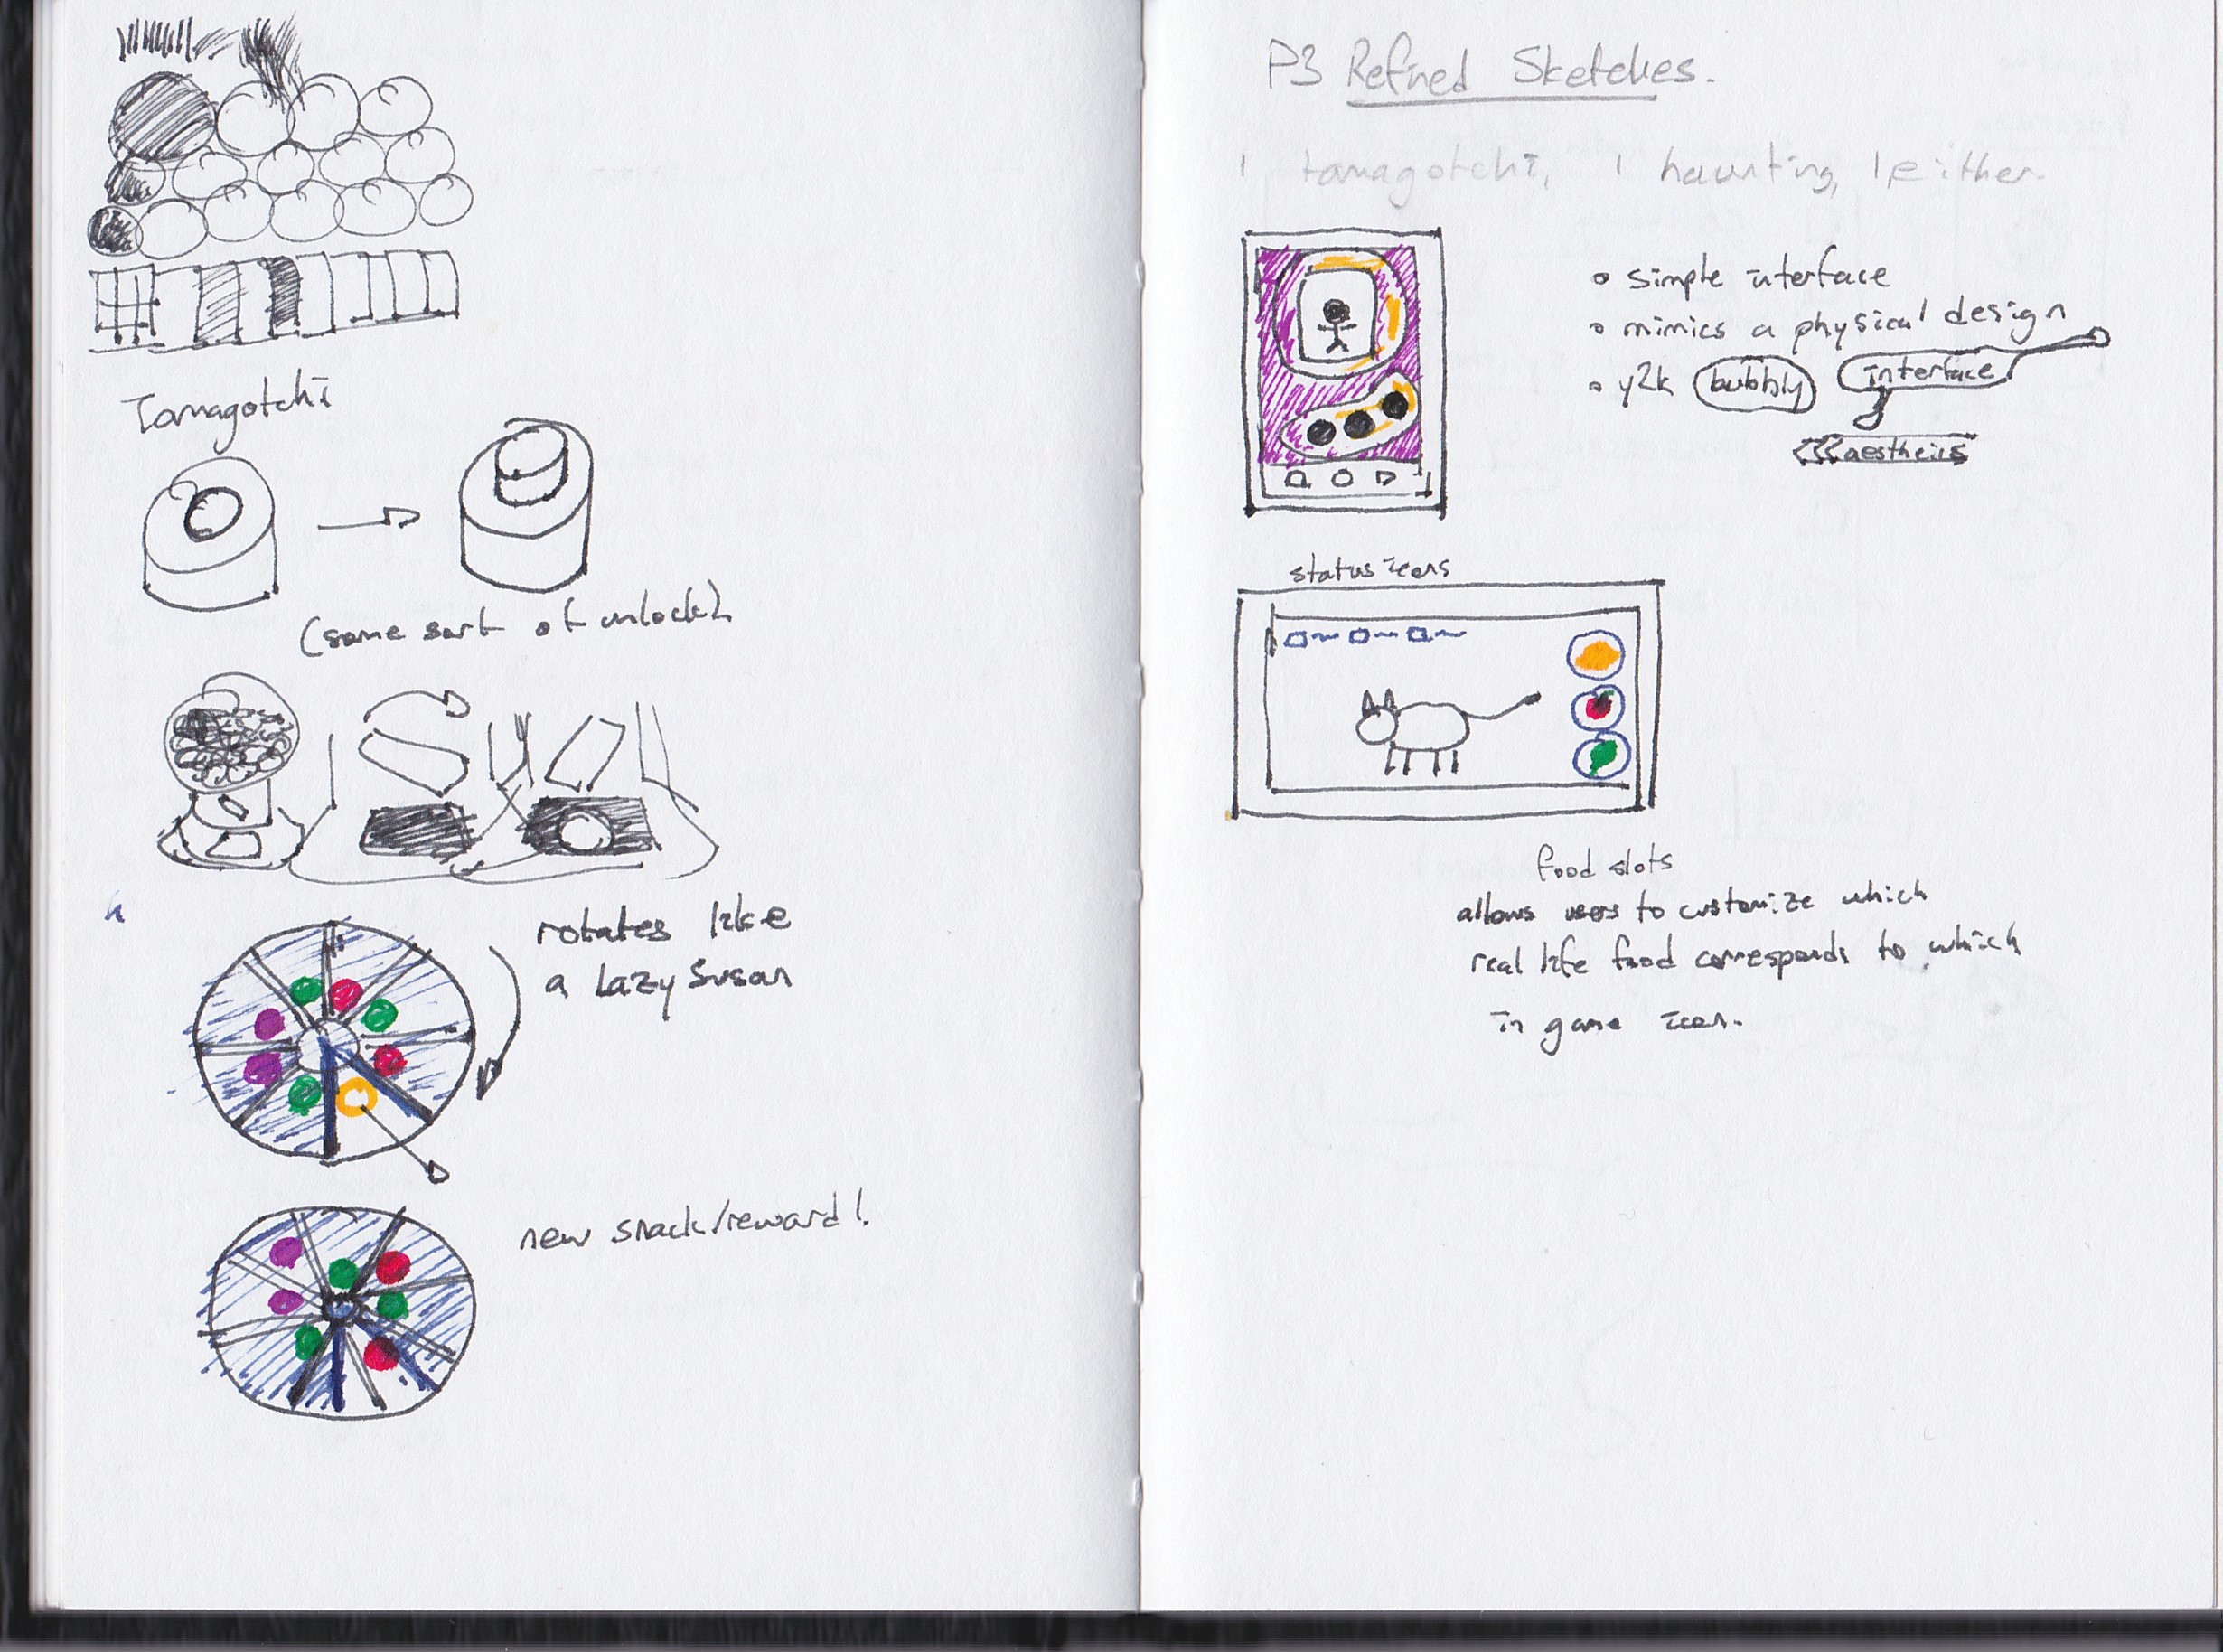 Tamagotchi
(some sort of unlock)
rotates like
a Lazy Susan
new snack/reward!
P3 Refined Sketches.
1 tamagotchi, 1 haunting, 1 either.
simple interface
mimics a physical design
y2k bubbly interface
aesthetics
status icons
food slots
allows users to customize which
real life food corresponds to which
in game icon.